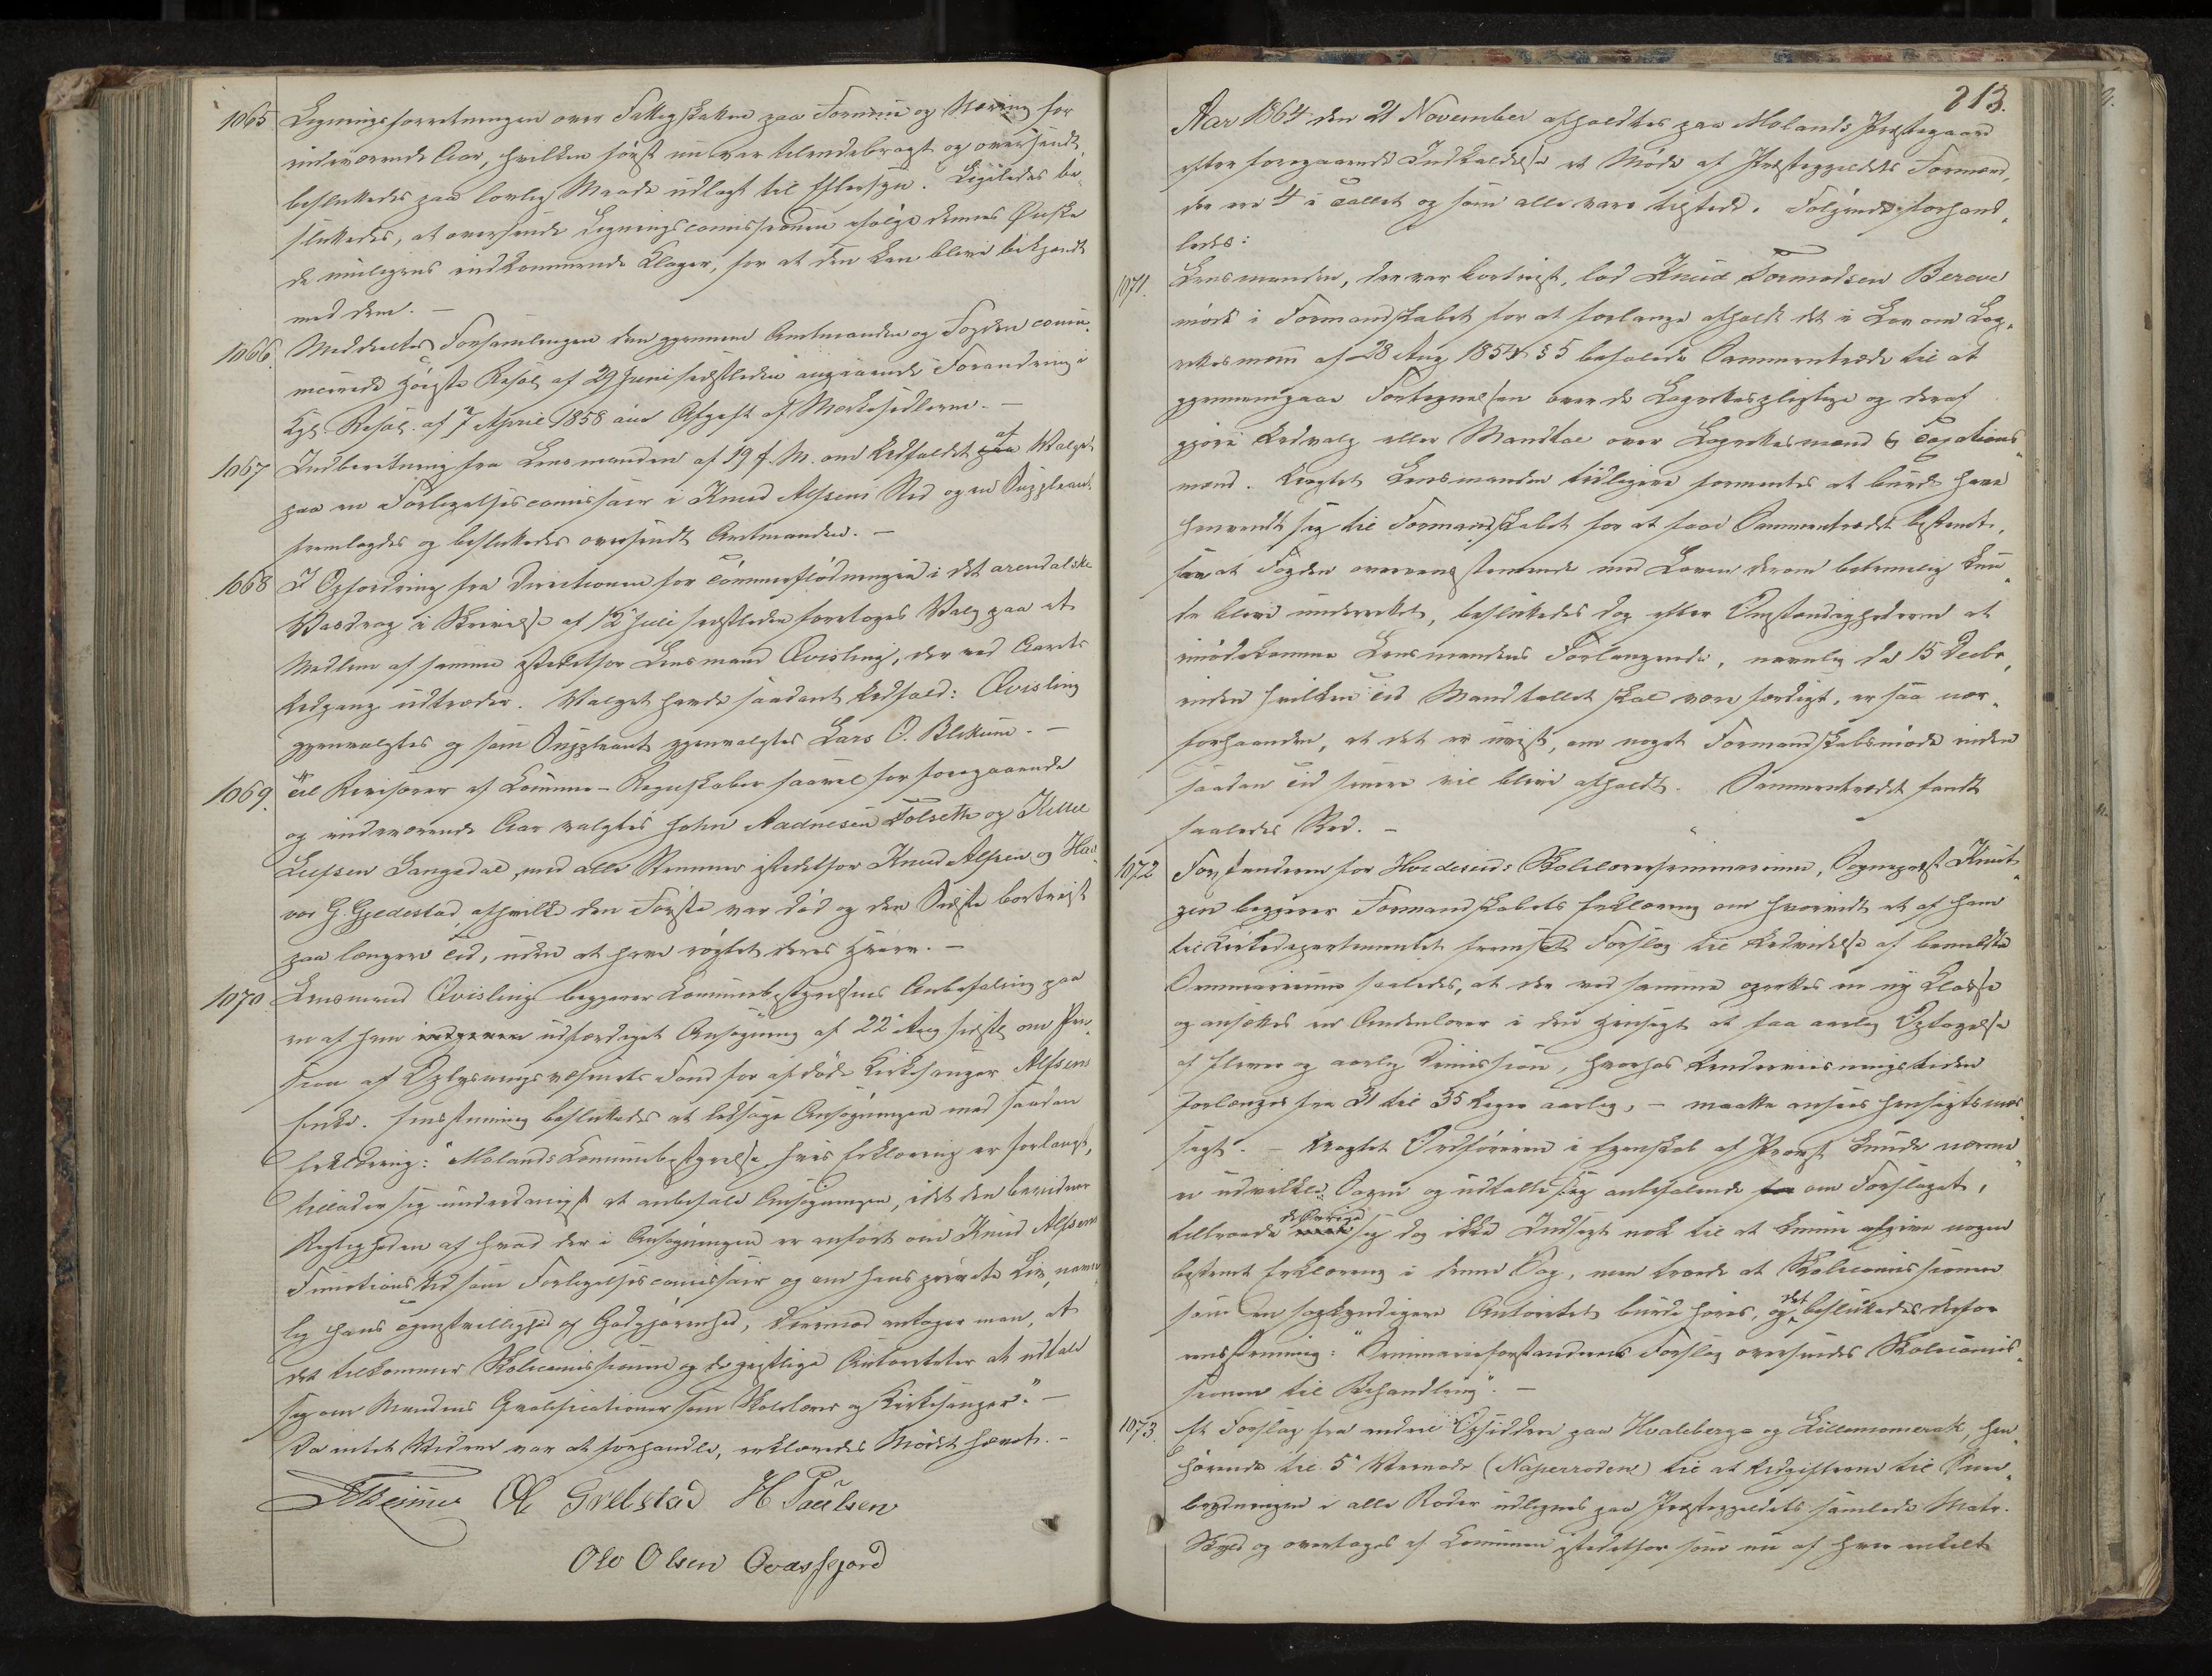 1065 Ligningsforretningen over Fattigskatten paa Formue og Næring for
indeværende Aar, hvilken først nu var tilendebragt og oversendt,
besluttedes paa lovlig Maade udlagt til Eftersyn. Ligeledes be-
sluttedes, at oversende Ligningscomissionen ifølge dennes Ønske
de muligens indkommende Klager, for at den kan blive bekjendt
med dem. –
1066. Meddeeltes Forsamlingen den gjennem Amtmanden og Fogden comu-
nicerede høieste Resol. af 29 Juni sidstleden angaaende Forandring i
Kgl. Resol. af 7 April 1858 ang Afgift af Markesedlerne. –
1067 Indberetning fra Lensmanden af 19 f. M. om Udfaldet paa af Valget
paa en Forligelsescomissair i Knud Alfsens Sted og en Suppleant
fremlagdes og besluttedes oversendt Amtmanden. –
1068 I Opfordring fra Directionen for Tømmerflødningen i det arendalske
Vasdrag i Skrivelse af 12 Juli sidstleden foretoges Valg paa et
Medlem af samme istedetfor Lensmand Qvisling, der ved Aarets
Udgang udtræder. Valget havde saadant Udfald: Qvisling
gjenvalgtes og som Suppleant gjenvalgtes Lars O. Blekum. –
1069. Til Revisorer af Commune-Regnskaber saavel for foregaaende
og indeværende Aar valgtes John Aadnesen Tolseth og Kittil
Leifsen Langedal, med alle Stemmer istedetfor Knud Alfsen og Hal-
vor G. Gjedestad, af hvilke den Første var død og den Sidste bortreist
paa længere Tid, uden at have røgtet deres Hverv. –
1070 Lensmand Qvisling begjærer Communebestyrelsens Anbefaling paa
en af ham udfærdiget Ansøgning af 22 Aug sidstl. om Pen-
sion af Oplysningsvæsenets Fond for afdøde Kirkesanger Alfsens
Enke. Eenstemmig besluttedes at ledsage Ansøgningen med saadan
Erklæring: "Molands Communebestyrelse, hvis Erklæring er forlangt,
tillader sig underdanigst at anbefale Ansøgningen, idet den bevidner
Rigtigheden af hvad der i Ansøgningen er anført om Knud Alfsens
Functionstid som Forligelsescomissair og om hans private Liv, navn-
lig hans Tjenstvillighed og Godgjørenhed, derimod antager man, at
det tilkommer Skolecomissionen og de geistlige Autoriteter at udtale
sig om Mandens Qvalificationer som Skolelærer og Kirkesanger." –
Da intet Videre var at forhandle, erklæredes Mødet hævet. –
Ole Grelstad H Paulsen
Ole Olsen Qvassjord
213.
Aar 1864 den 21 November afholdtes paa Molands Præstegaard
efter foregaaende Indkaldelse et Møde af Præstegjeldets Formænd,
der ere 4 i Tallet og som alle vare tilstede. Følgende forhand-
ledes:
1071. Lensmanden, der var bortreist, lod Knud Tormodsen Bereve
møde i Formandskabet for at forlange afholdt det i Lov om Lag-
rettesmænd af 28 Aug 1854 § 5 befalede Sammentræde til at
gjennemgaae Fortegnelsen over de Lagrettespligtige og deraf
gjøre Udvalg eller Mandtal over Lagrettesmænd og Taxations-
mænd. Uagtet Lensmanden tidligere formentes at burde have
henvendt sig til Formandskabet for at faae Sammentrædet bestemt,
saa at Fogden overeensstemmende med Loven derom betimelig kun-
de blive underrettet, besluttedes dog efter Omstændighederne at
imødekomme Lensmandens Forlangende, navnlig da 15 Decbr,
inden hvilken Tid Mandtallet skal være færdigt, er saa nær
forhaanden, at det er uvist, om noget Formandskabsmøde inden
saadan Tid senere vil blive afholdt. Sammentrædet fandt
saaledes Sted. –
1072 Forstanderen for Hvideseids Skolelærerseminarium, Sognepræst Knut-
zen begjærer Formandskabets Erklæring om hvorvidt et af ham
til Kirkedepartementet fremsat Forslag til Udvidelse af bemeldte
Seminarium saaledes, at der ved samme oprettes en ny Classe
og ansættes en Andenlærer i den Hensigt at faa aarlig Optagelse
af Elever og aarlig Dimission, hvorhos Underviisningstiden
forlænges fra 31 til 35 Uger aarlig, – maatte ansees hensigtsmæs-
sigt. – Uagtet Ordføreren i Egenskab af Provst kunde nærme-
re udvikle Sagen og udtalte sig anbefalende for om Forslaget,
tiltroede de Øvrige sig dog ikke Indsigt nok til at kunne afgive nogen
bestemt Erklæring i denne Sag, men troede at Skolecomissionen
som en sagkyndigere Autoritet burde høres, og det besluttedes derfor
eensstemmig: "Seminarieforstanderens Forslag oversendes Skolecomis-
sionen til Behandling". –
1073. Et Forslag fra endeel Opsiddere paa Hvalsberge og Lillemomerak, hen-
hørende til 5 Veirode (Naperroden) til at Udgifterne til Snee-
brydningen i alle Roder udlignes paa Præstegjeldets samlede Matr.
Skyld og overtages af Communen istedetfor som nu af hver enkelt